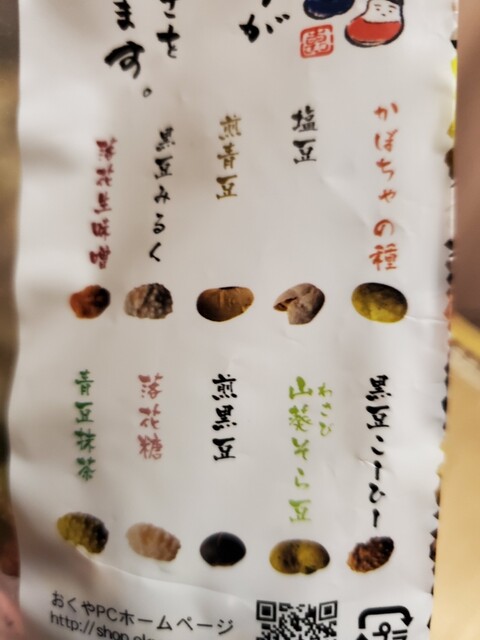 さを
ます。
が
かぼちゃの種
塩豆
煎青豆
黒豆みるく
落花生味噌
黒豆こーひー
わさび
山葵そら豆
煎黒豆
落花糖
青豆抹茶
おくやPCホームページ
http://shop.